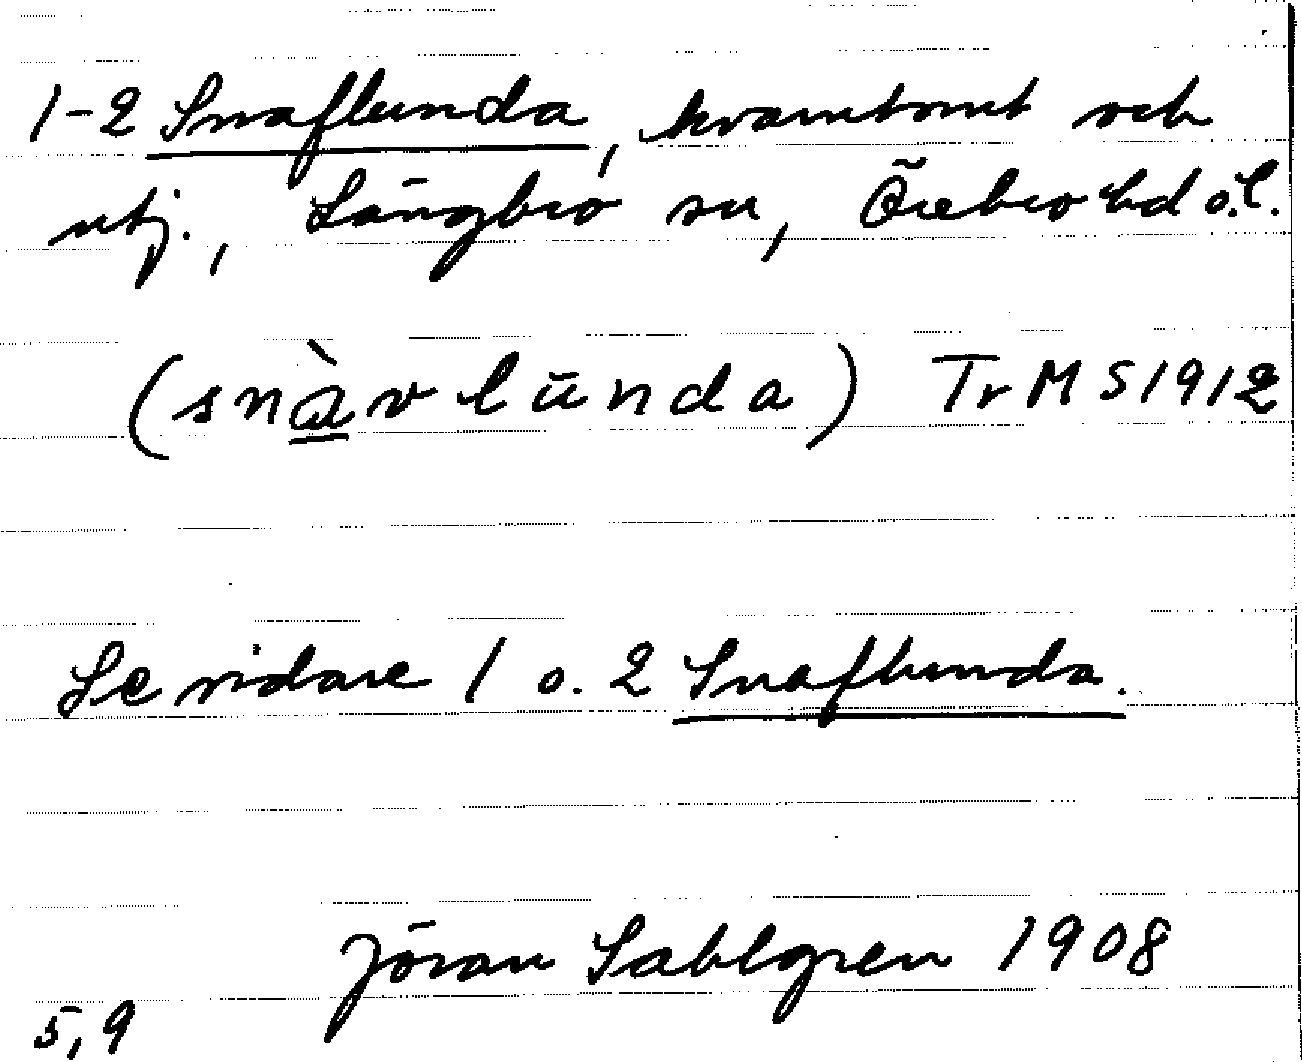 1-2 Snaflunda, kvarntomt och
utj., Längbro sn, Örebro hd ö.l.
(snàvlūnda) TrMS1912
Se vidare 1 o. 2 Snaflunda.
Jöran Sahlgren 1908
5,9